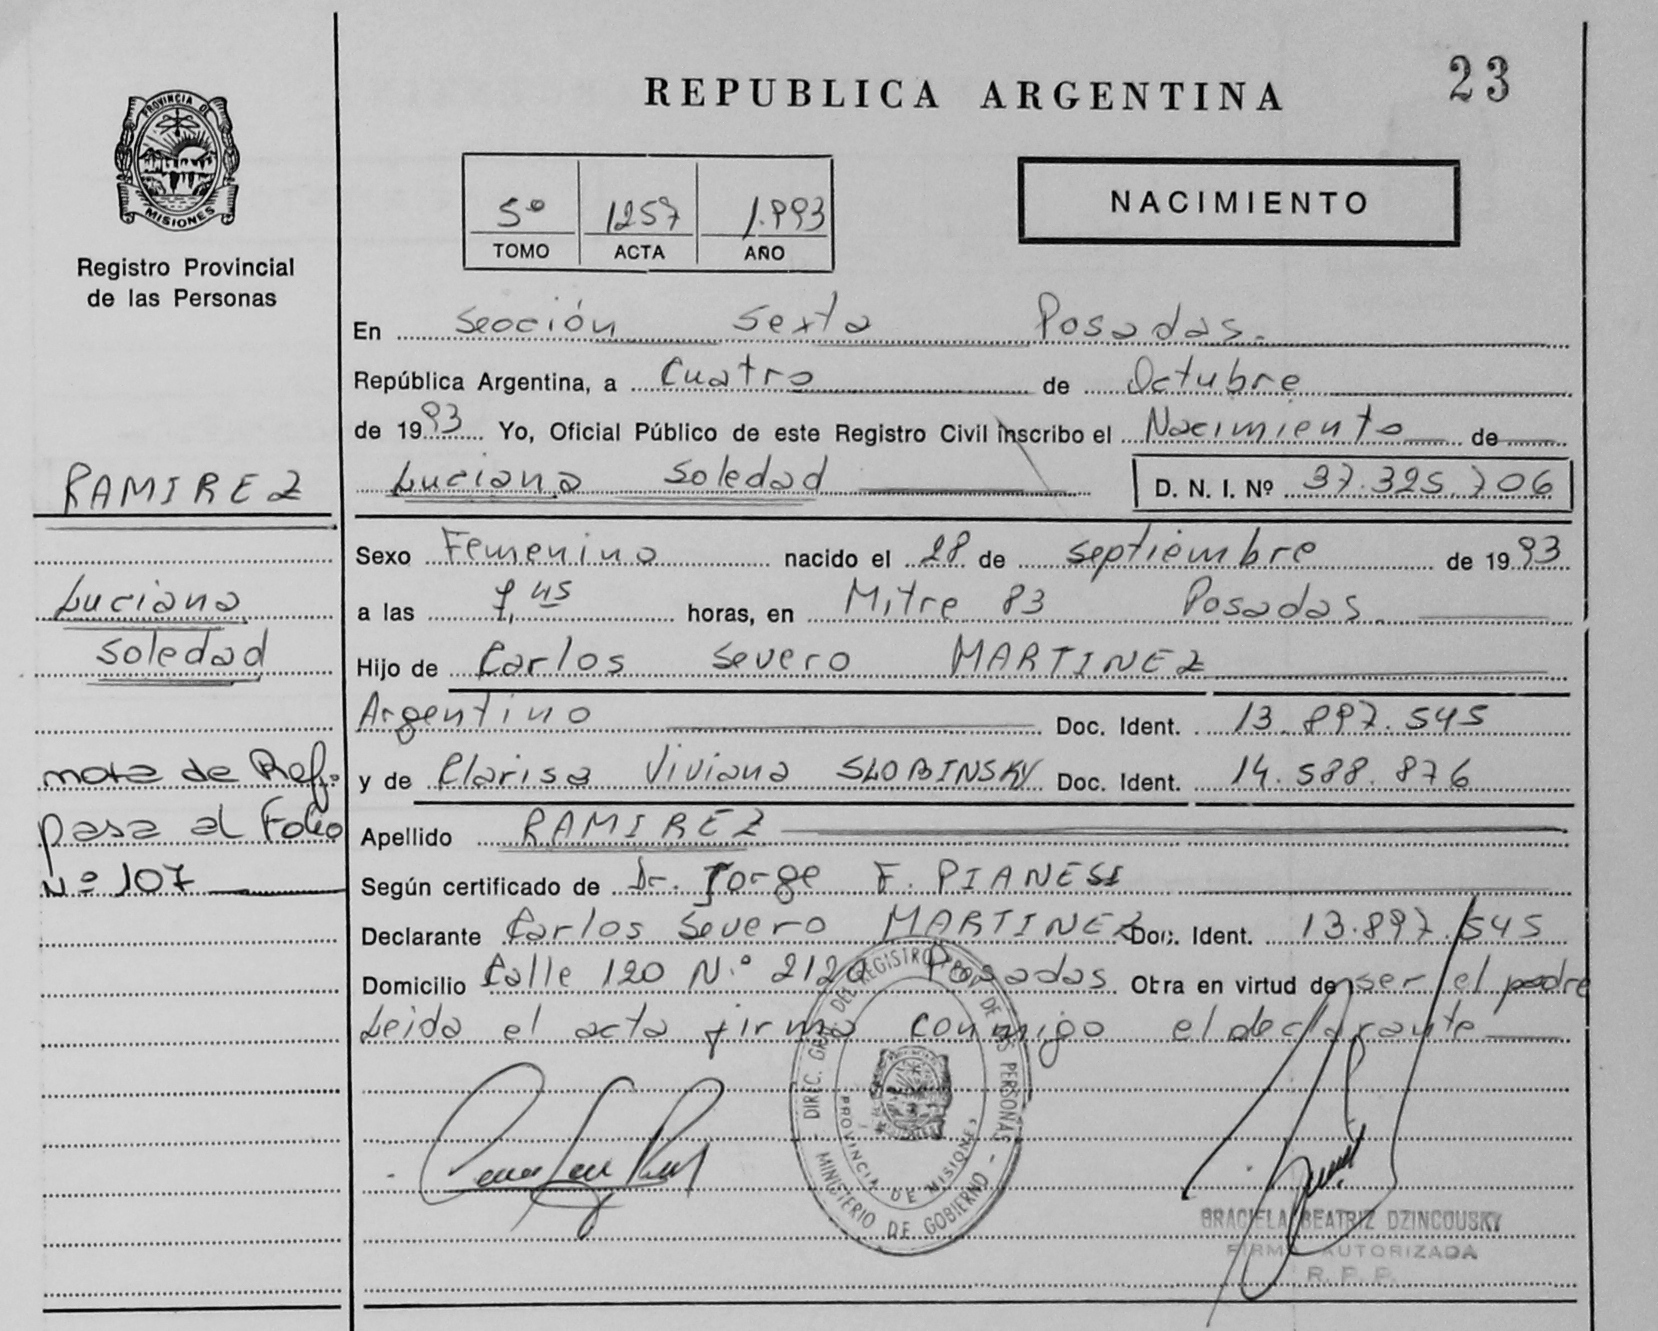 23
REPUBLICA ARGENTINA
PROVINCIA DE
MISIONES
Registro Provincial
de las Personas
5º 1257 1.993
TOMO ACTA AÑO
NACIMIENTO
En Sección Sexta Posadas.
República Argentina, a Cuatro de Octubre
de 1993 Yo, Oficial Público de este Registro Civil inscribo el Nacimiento de
Luciana Soledad D. N. I. Nº 37.325.706
RAMIREZ
Sexo Femenino nacido el 28 de septiembre de 1993
Luciana
a las 7,45 horas, en Mitre 83 Posadas.
Soledad
Hijo de Carlos Severo MARTINEZ
Argentino Doc. Ident. 13.897.545
nota de Ref:
y de Clarisa Viviana SLOBINSKY Doc. Ident. 14.588.876
pasa al Folio
Apellido RAMIREZ
Nº 107
Según certificado de Dr. Jorge F. PIANESI
Declarante Carlos Severo MARTINEZ Doc. Ident. 13.897.545
Domicilio Calle 120 N.º 2120 Posadas. Obra en virtud de ser el padre
Leida el acta firma conmigo el declarante
DIREC. GRAL. DEL REGISTRO PROV. DE LAS PERSONAS - MINISTERIO DE GOBIERNO -
PROVINCIA DE MISIONES
GRACIELA BEATRIZ DZINCOUSKY
FIRMA AUTORIZADA
R. P. P.